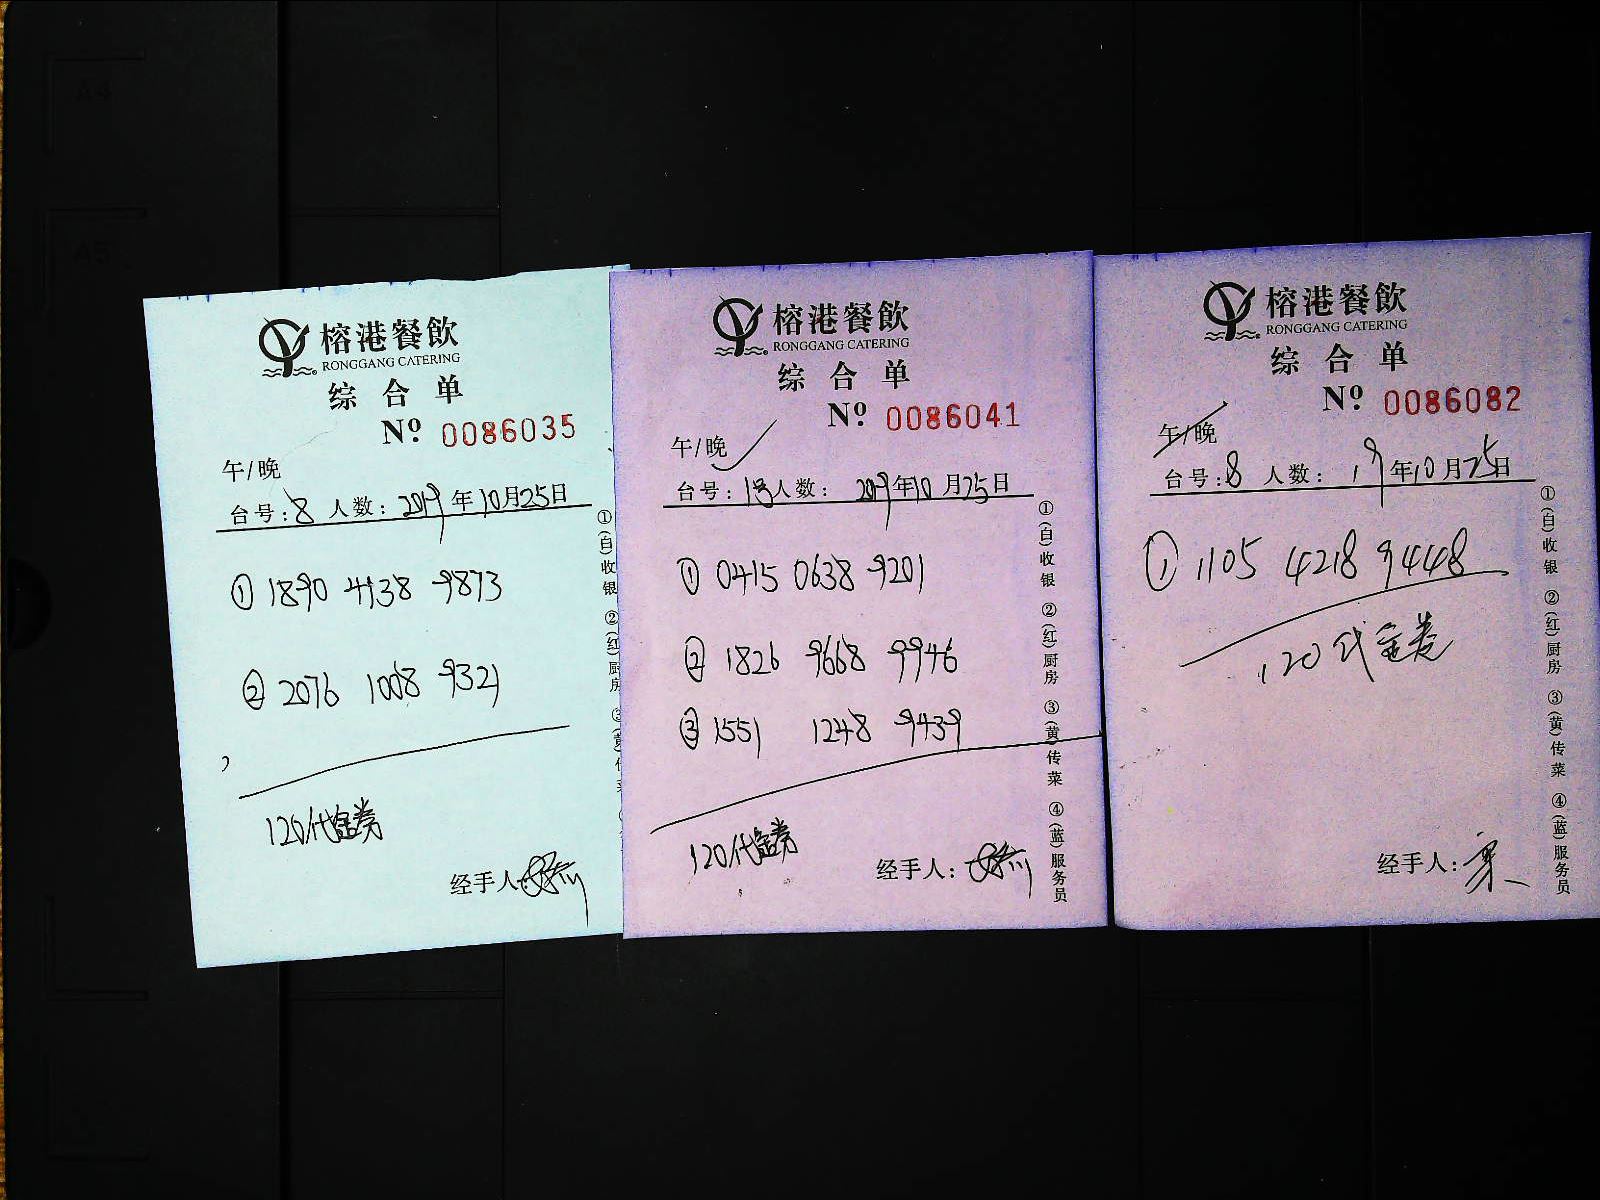 A4
A5
榕港餐飲
RONGGANG CATERING
综合单
Nº 0086035
午/晚
台号:8 人数: 2019年10月25日
① 1890 4138 9873
② 2076 1008 9321
120代金券
经手人:
①(白)收银 ②(红)厨房
榕港餐飲
RONGGANG CATERING
综合单
Nº 0086041
午/晚
台号:1号人数: 2019年10月25日
① 0415 0638 9201
② 1826 9668 9946
③ 1551 1248 9439
120代金券
经手人:
①(白)收银 ②(红)厨房 ③(黄)传菜 ④(蓝)服务员
榕港餐飲
RONGGANG CATERING
综合单
Nº 0086082
午/晚
台号:8 人数: 19年10月25日
① 1105 4218 9448
120代金卷
经手人:
①(白)收银 ②(红)厨房 ③(黄)传菜 ④(蓝)服务员